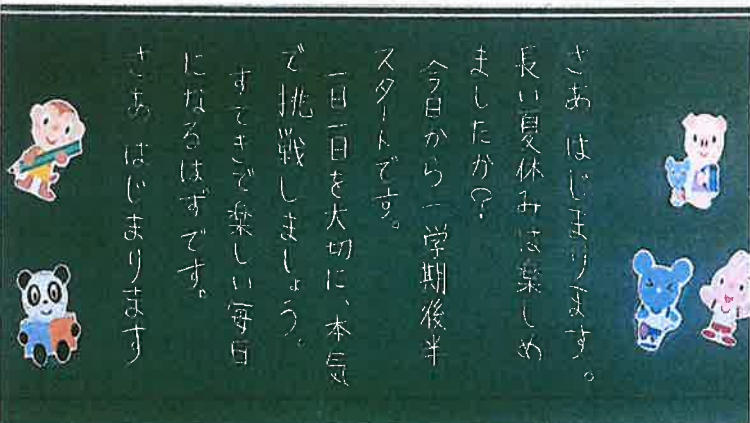 さあ はじまります。
長い夏休みは楽しめ
ましたか？
今日から一学期後半
スタートです。
一日一日を大切に、本気
で挑戦しましょう。
すてきで楽しい毎日
になるはずです。
さあ はじまります